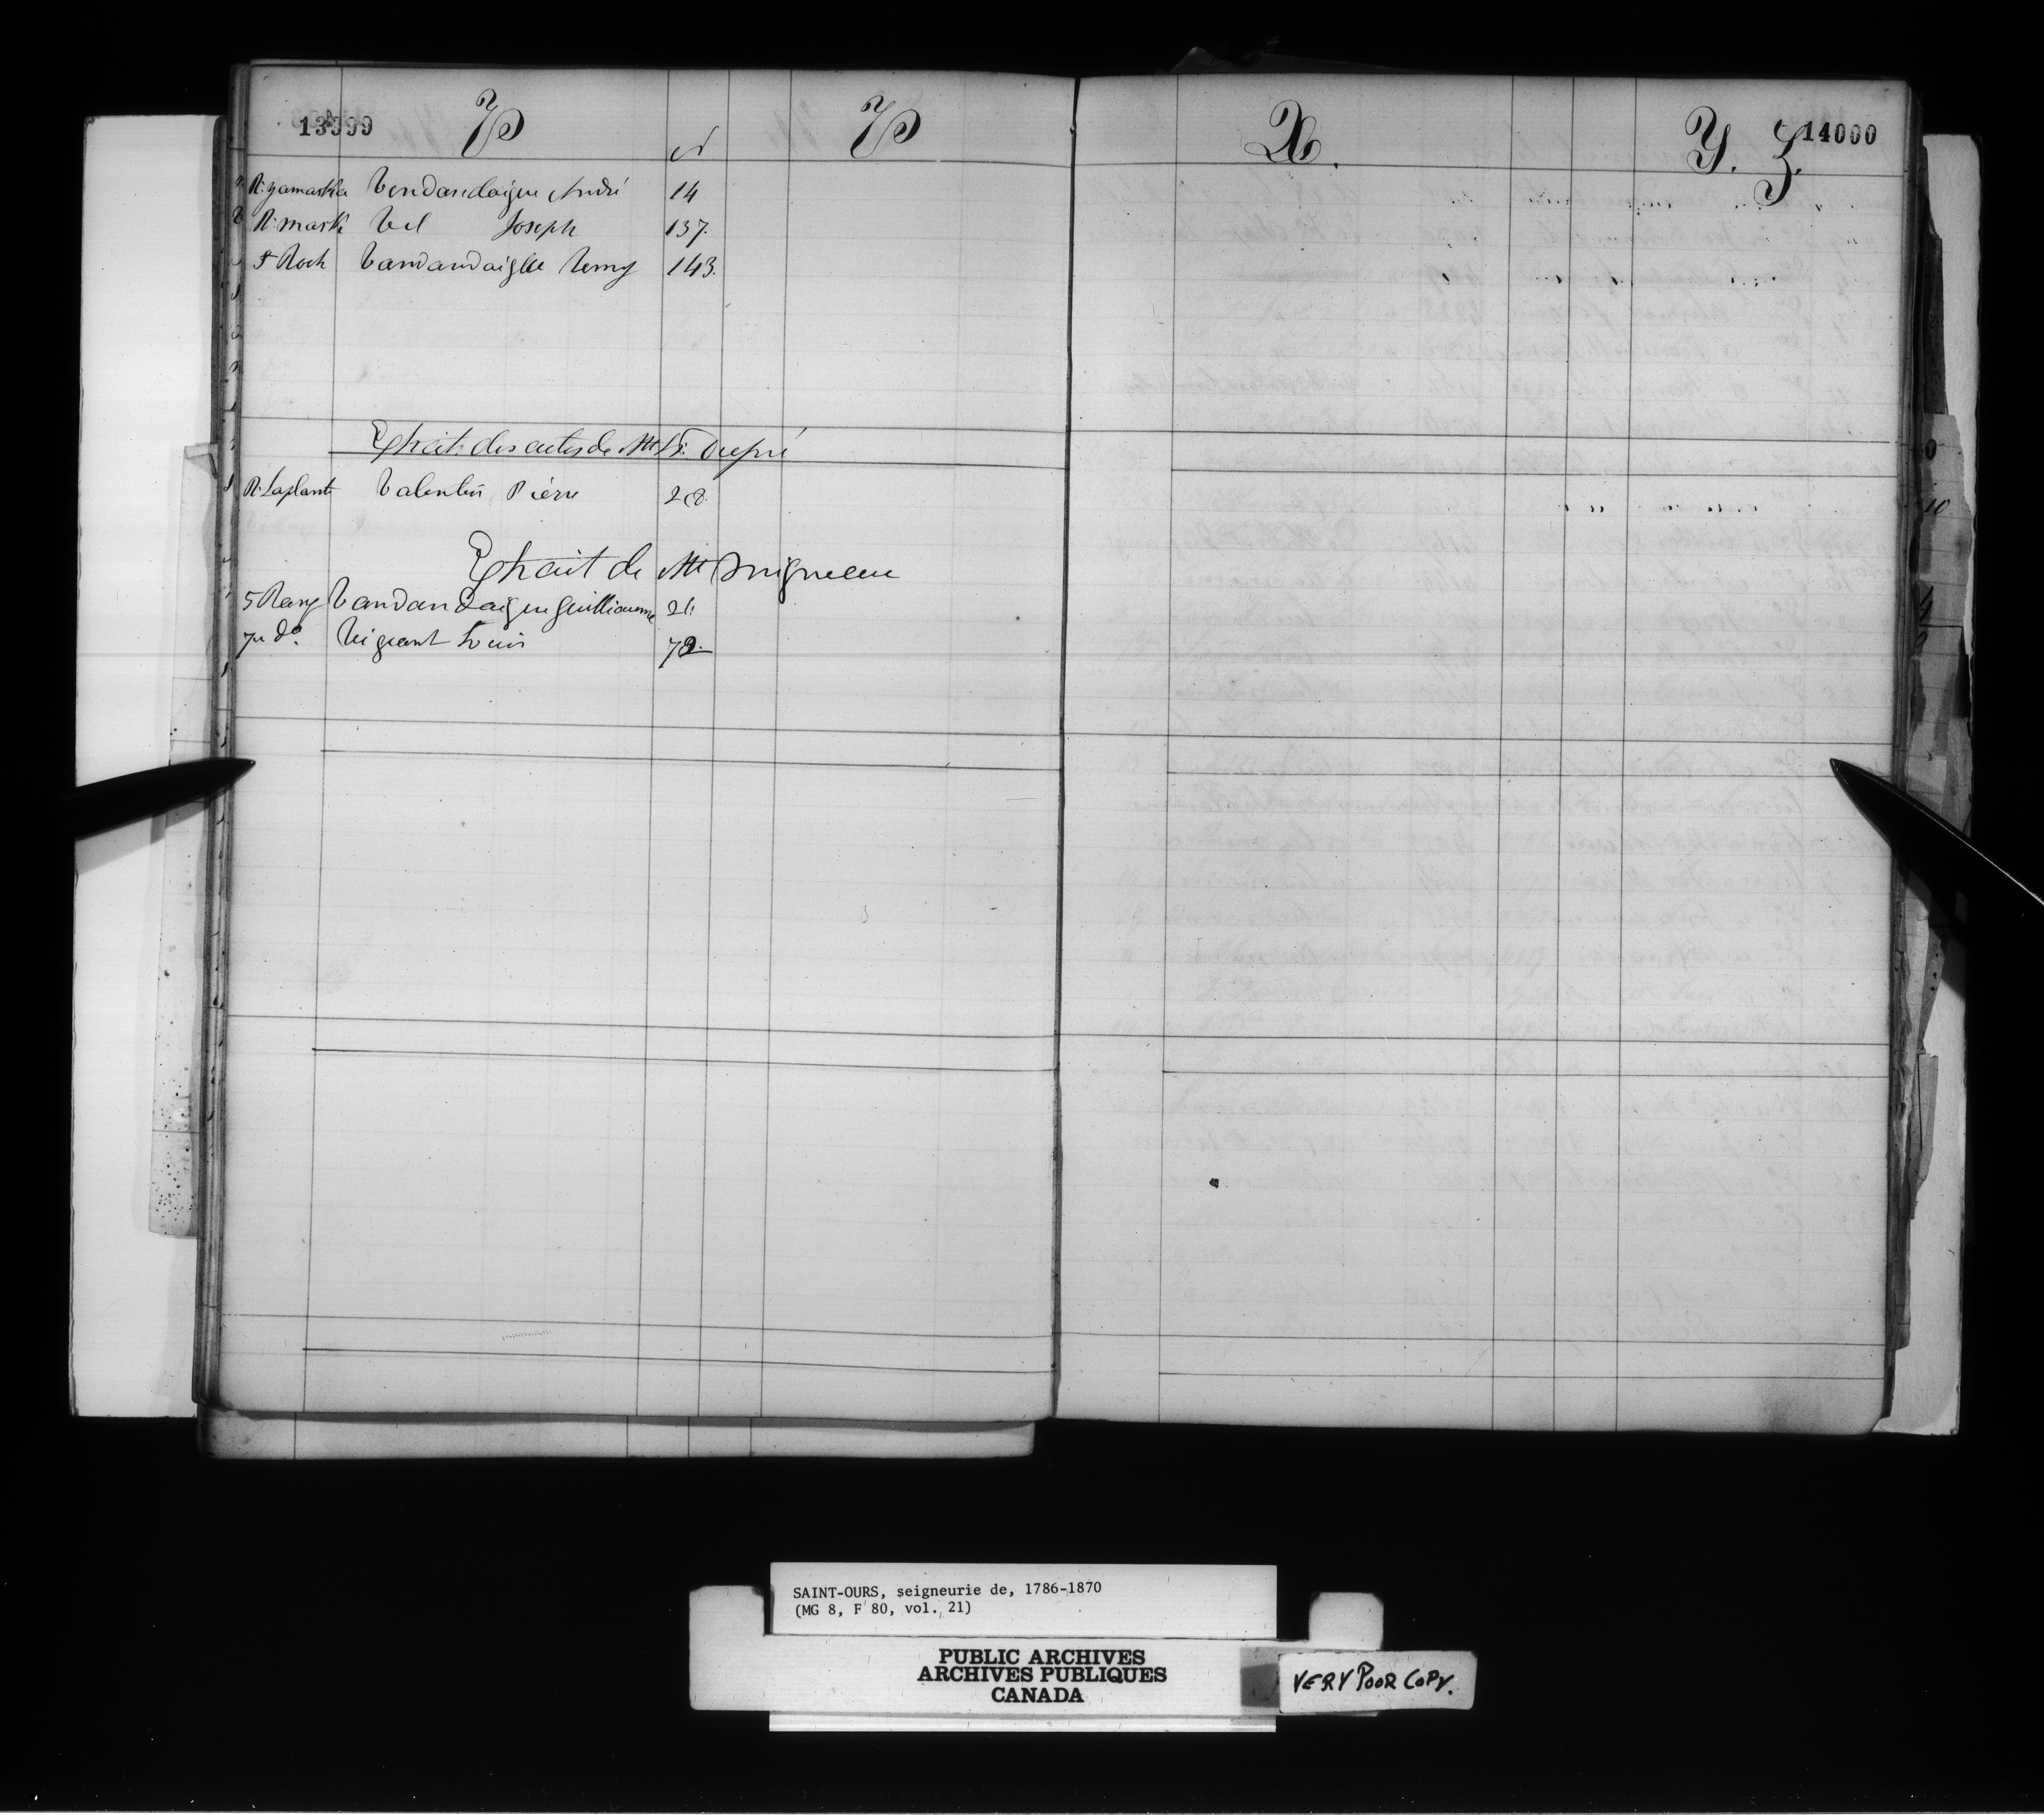 13999 V N° V
R. yamaska Vendandaigue André 14
R. mask Vel Joseph 137.
St Roch Vandandaigue Remy 143.
Extrait des actes de Mtre Dupré
R. Laplante Valentin Pierre 28.
Extrait de Mtre Migneau
5 Rang Vandandaigue Guilliaume 21
7me do. Vigeant Louis 72
X. Y. Z. 14000
10
SAINT-OURS, seigneurie de, 1786-1870
(MG 8, F 80, vol. 21)
PUBLIC ARCHIVES
ARCHIVES PUBLIQUES
CANADA
VERY POOR COPY.